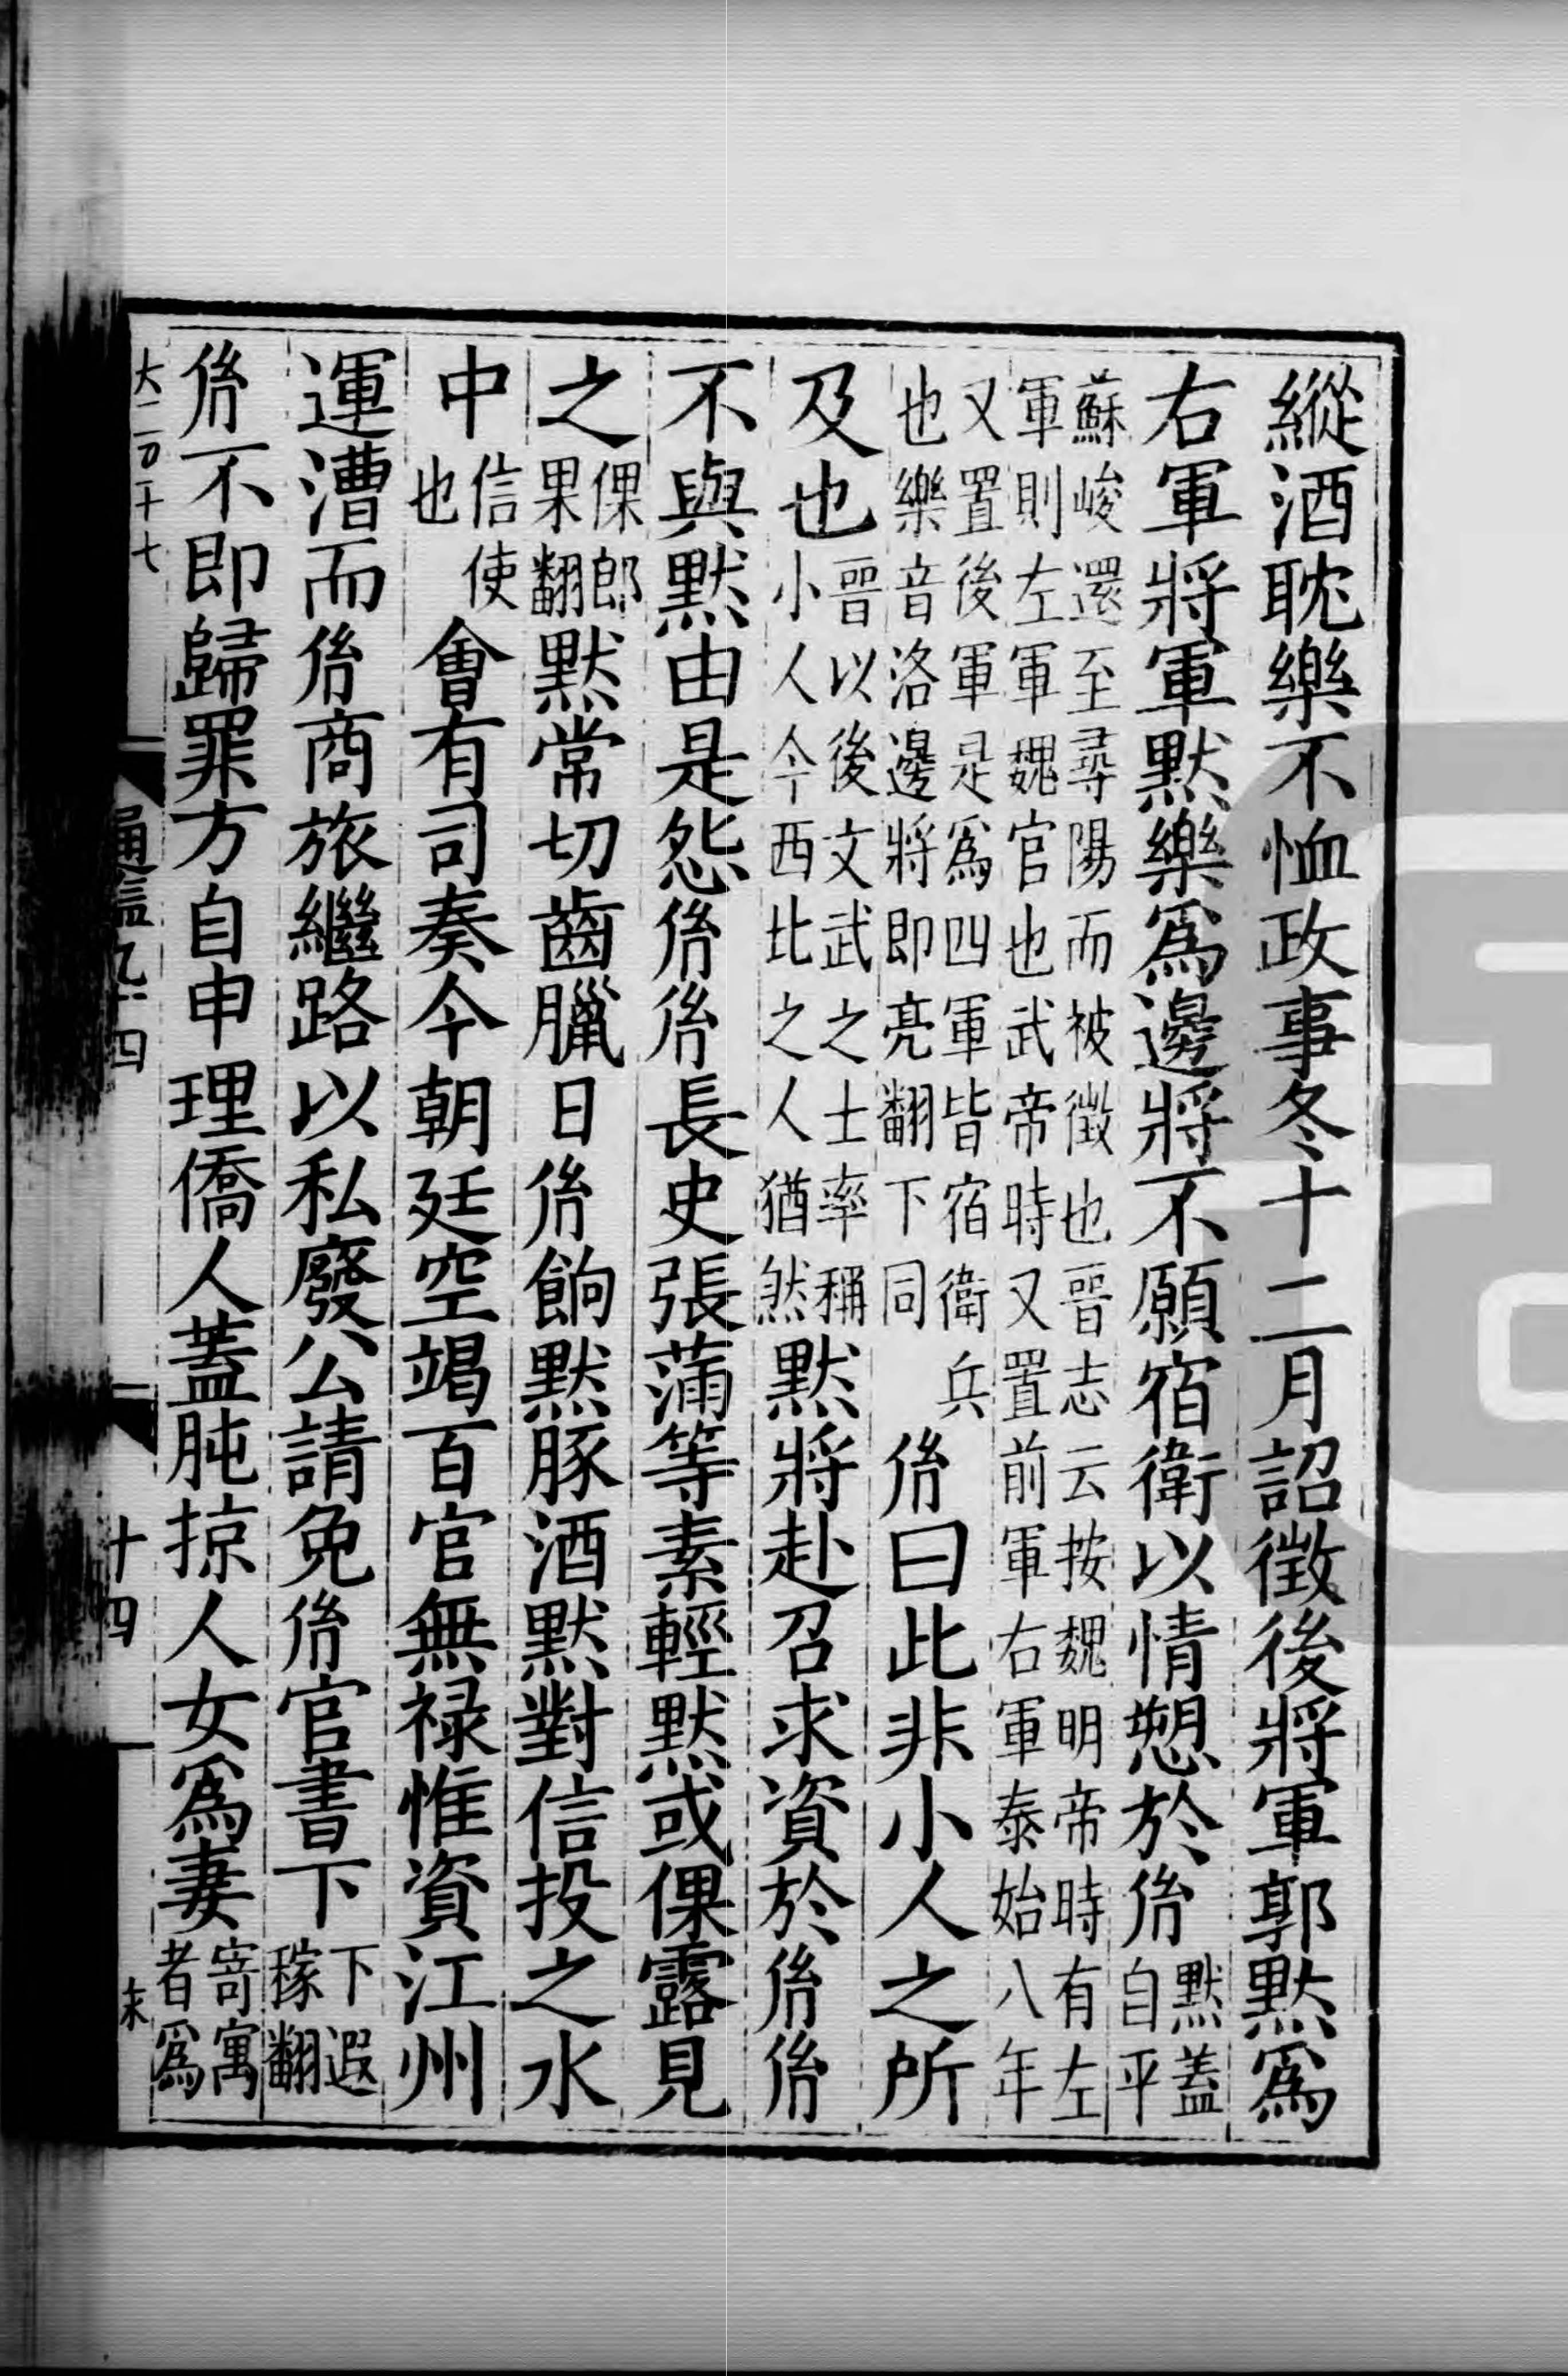 縱酒耽樂不恤政事冬十二月詔徵後將軍郭默爲
右軍將軍默樂爲邊將不願宿衛以情愬於胤默蓋自平
蘇峻還至尋陽而被徵也晉志云按魏明帝時有左
軍則左軍魏官也武帝時又置前軍右軍泰始八年
又置後軍是爲四軍皆宿衛兵
也樂音洛邊將即亮翻下同胤曰此非小人之所
及也晉以後文武之士率稱
小人今西北之人猶然默將赴召求資於胤胤
不與默由是怨胤胤長史張蒲等素輕默或倮露見
之倮郎果翻默常切齒臘日胤餉默豚酒默對信投之水
中信使也會有司奏今朝廷空竭百官無禄惟資江州
運漕而胤商旅繼路以私廢公請免胤官書下下遐稼翻
胤不即歸罪方自申理僑人蓋肫掠人女爲妻寄寓者爲
通鑑九十四
十四